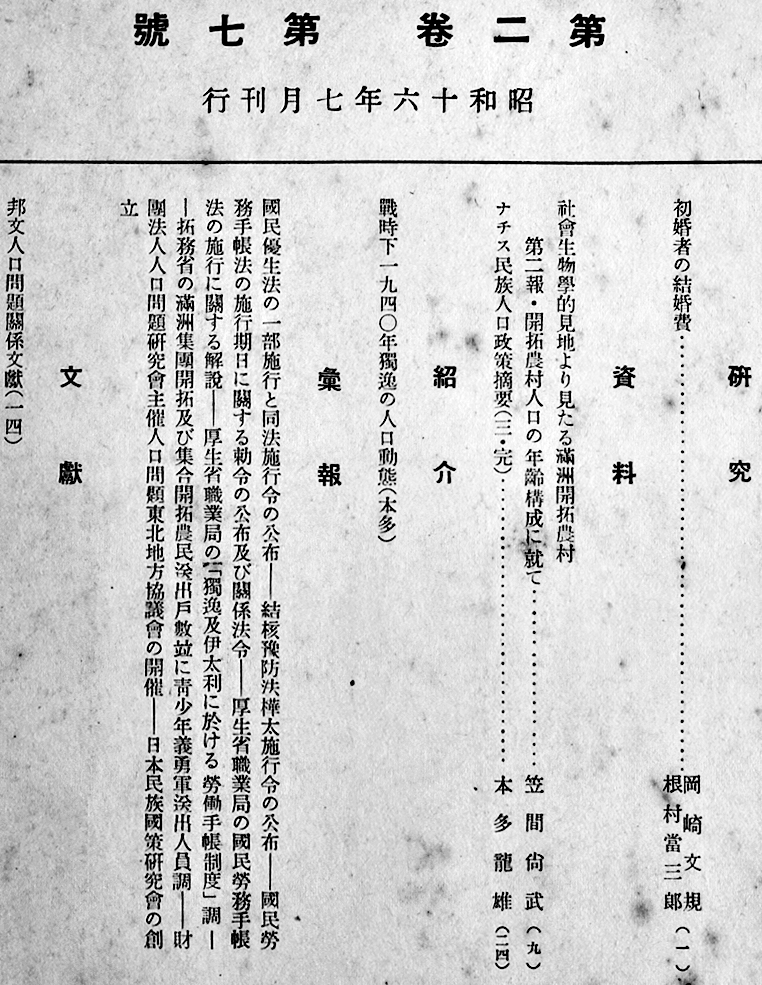 第二卷　第七號
昭和十六年七月刊行
研究
初婚者の結婚費……岡崎文規
根村當三郎（一）
資料
社會生物學的見地より見たる滿洲開拓農村
第二報・開拓農村人口の年齡構成に就て……笠間尙武（九）
ナチス民族人口政策摘要（三・完）……本多龍雄（二四）
紹介
戰時下一九四〇年獨逸の人口動態（本多）
彙報
國民優生法の一部施行と同法施行令の公布――結核豫防法樺太施行令の公布――國民勞
務手帳法の施行期日に關する勅令の公布及び關係法令――厚生省職業局の國民勞務手帳
法の施行に關する解說――厚生省職業局の「獨逸及伊太利に於ける勞働手帳制度」調―
―拓務省の滿洲集團開拓及び集合開拓農民送出戶數竝に靑少年義勇軍送出人員調――財
團法人人口問題硏究會主催人口問題東北地方協議會の開催――日本民族國策硏究會の創
立
文獻
邦文人口問題關係文獻（一四）